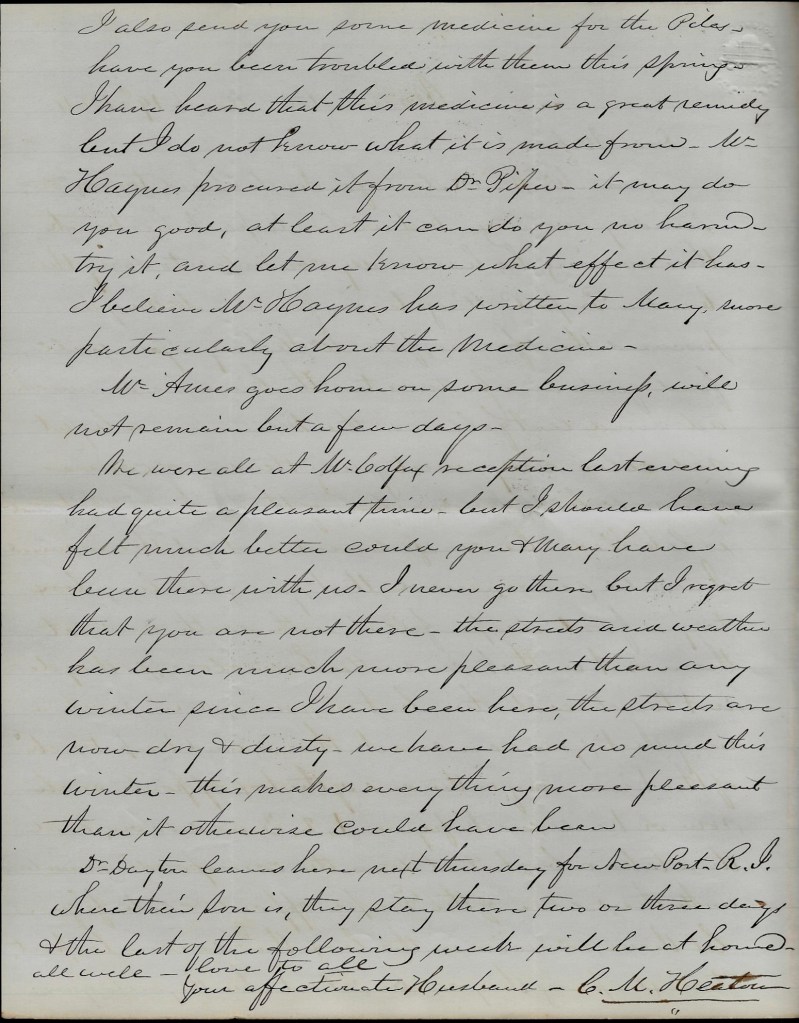 I also send you some medicine for the Piles -
have you been troubled with them this spring -
I have heard that this medicine is a great remidy
but I do not know what it is made from - Mr
Haynes procured it from Dr. Pifer - it may do
you good, at least it can do you no harm -
try it, and let me know what effect it has -
I believe Mr Haynes has written to Mary, more
particularly about the Medicine -
Mr Ames goes home on some business, will
not remain but a few days -
We were all at Mr Colfax reception last evening
had quite a pleasant time - but I should have
felt much better could you & Mary have
been there with us - I never go there but I regret
that you are not there - the streets and weather
has been much more pleasant than any
winter since I have been here, the streets are
now dry & dusty - we have had no mud this
winter - this makes everything more pleasant
than it otherwise could have been
Dr Dayton leaves here next thursday for New Port - R. I.
where their son is, they stay there two or three days
& the last of the following week will be at home -
all well - love to all
Your affectionate Husband - C. M. Heaton